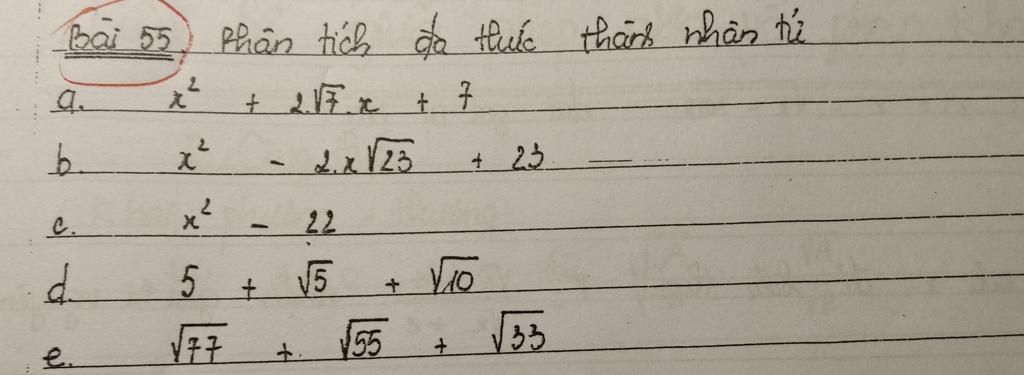 Bài 55. Phân tích đa thức thành nhân tử
a. x² + 2.√7.x + 7
b. x² - 2.x√23 + 23
c. x² - 22
d. 5 + √5 + √10
e. √77 + √55 + √33